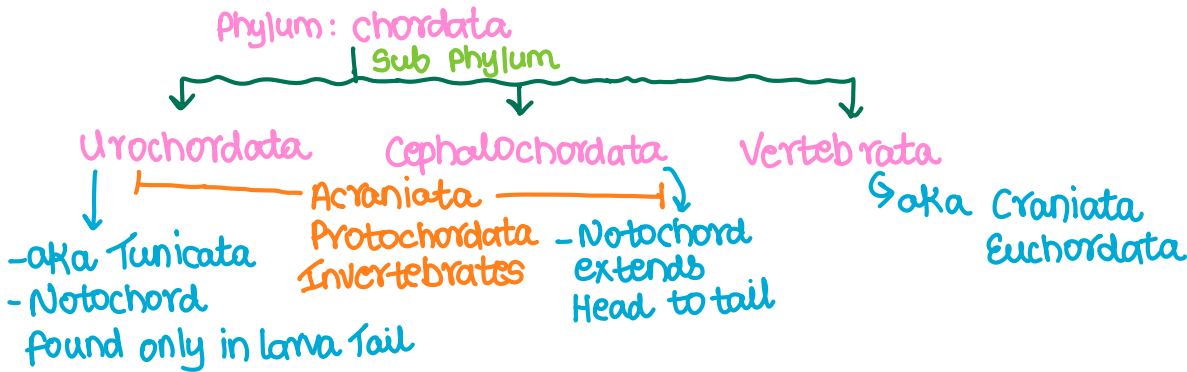 Phylum: Chordata
Sub Phylum
Urochordata
Cephalochordata
Vertebrata
Acraniata
Protochordata
Invertebrates
-aka Tunicata
- Notochord
found only in larva Tail
- Notochord
extends
Head to tail
aka Craniata
Euchordata